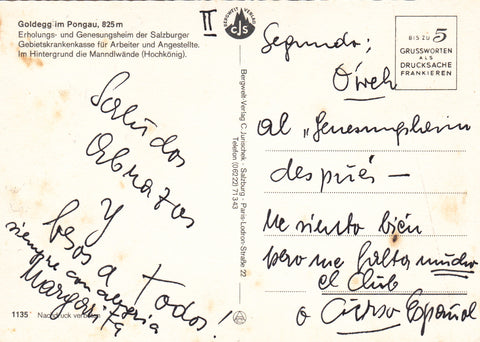 Goldegg im Pongau, 825 m
Erholungs- und Genesungsheim der Salzburger
Gebietskrankenkasse für Arbeiter und Angestellte.
Im Hintergrund die Manndlwände (Hochkönig).
II
BERGWELT-VERLAG
CJS
BIS ZU 5
GRUSSWORTEN
ALS
DRUCKSACHE
FRANKIEREN
Saludos
Abrazos
y
besos a todos!
siempre con alegria
Margarita
1135 Nachdruck verboten
Bergwelt-Verlag C. Jurischek - Salzburg - Paris-Lodron-Straße 22
Telefon (06222) 71343
Segundo:
O weh
al "Genesungsheim
después —
Me siento bien
pero me falta mucho
el Club
o Curso Español